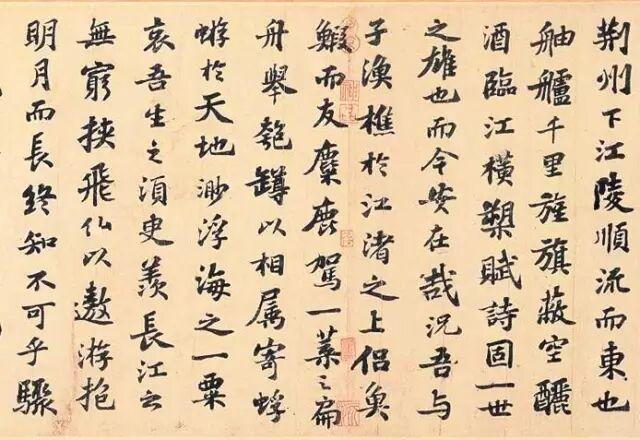 荆州下江陵順流而東也
舳艫千里旌旗蔽空釃
酒臨江橫槊賦詩固一世
之雄也而今安在哉況吾與
子漁樵於江渚之上侣魚
鰕而友麋鹿駕一葉之扁
舟舉匏罇以相属寄蜉
蝣於天地渺浮海之一粟
哀吾生之須臾羨長江之
無窮挾飛仙以遨游抱
明月而長終知不可乎驟